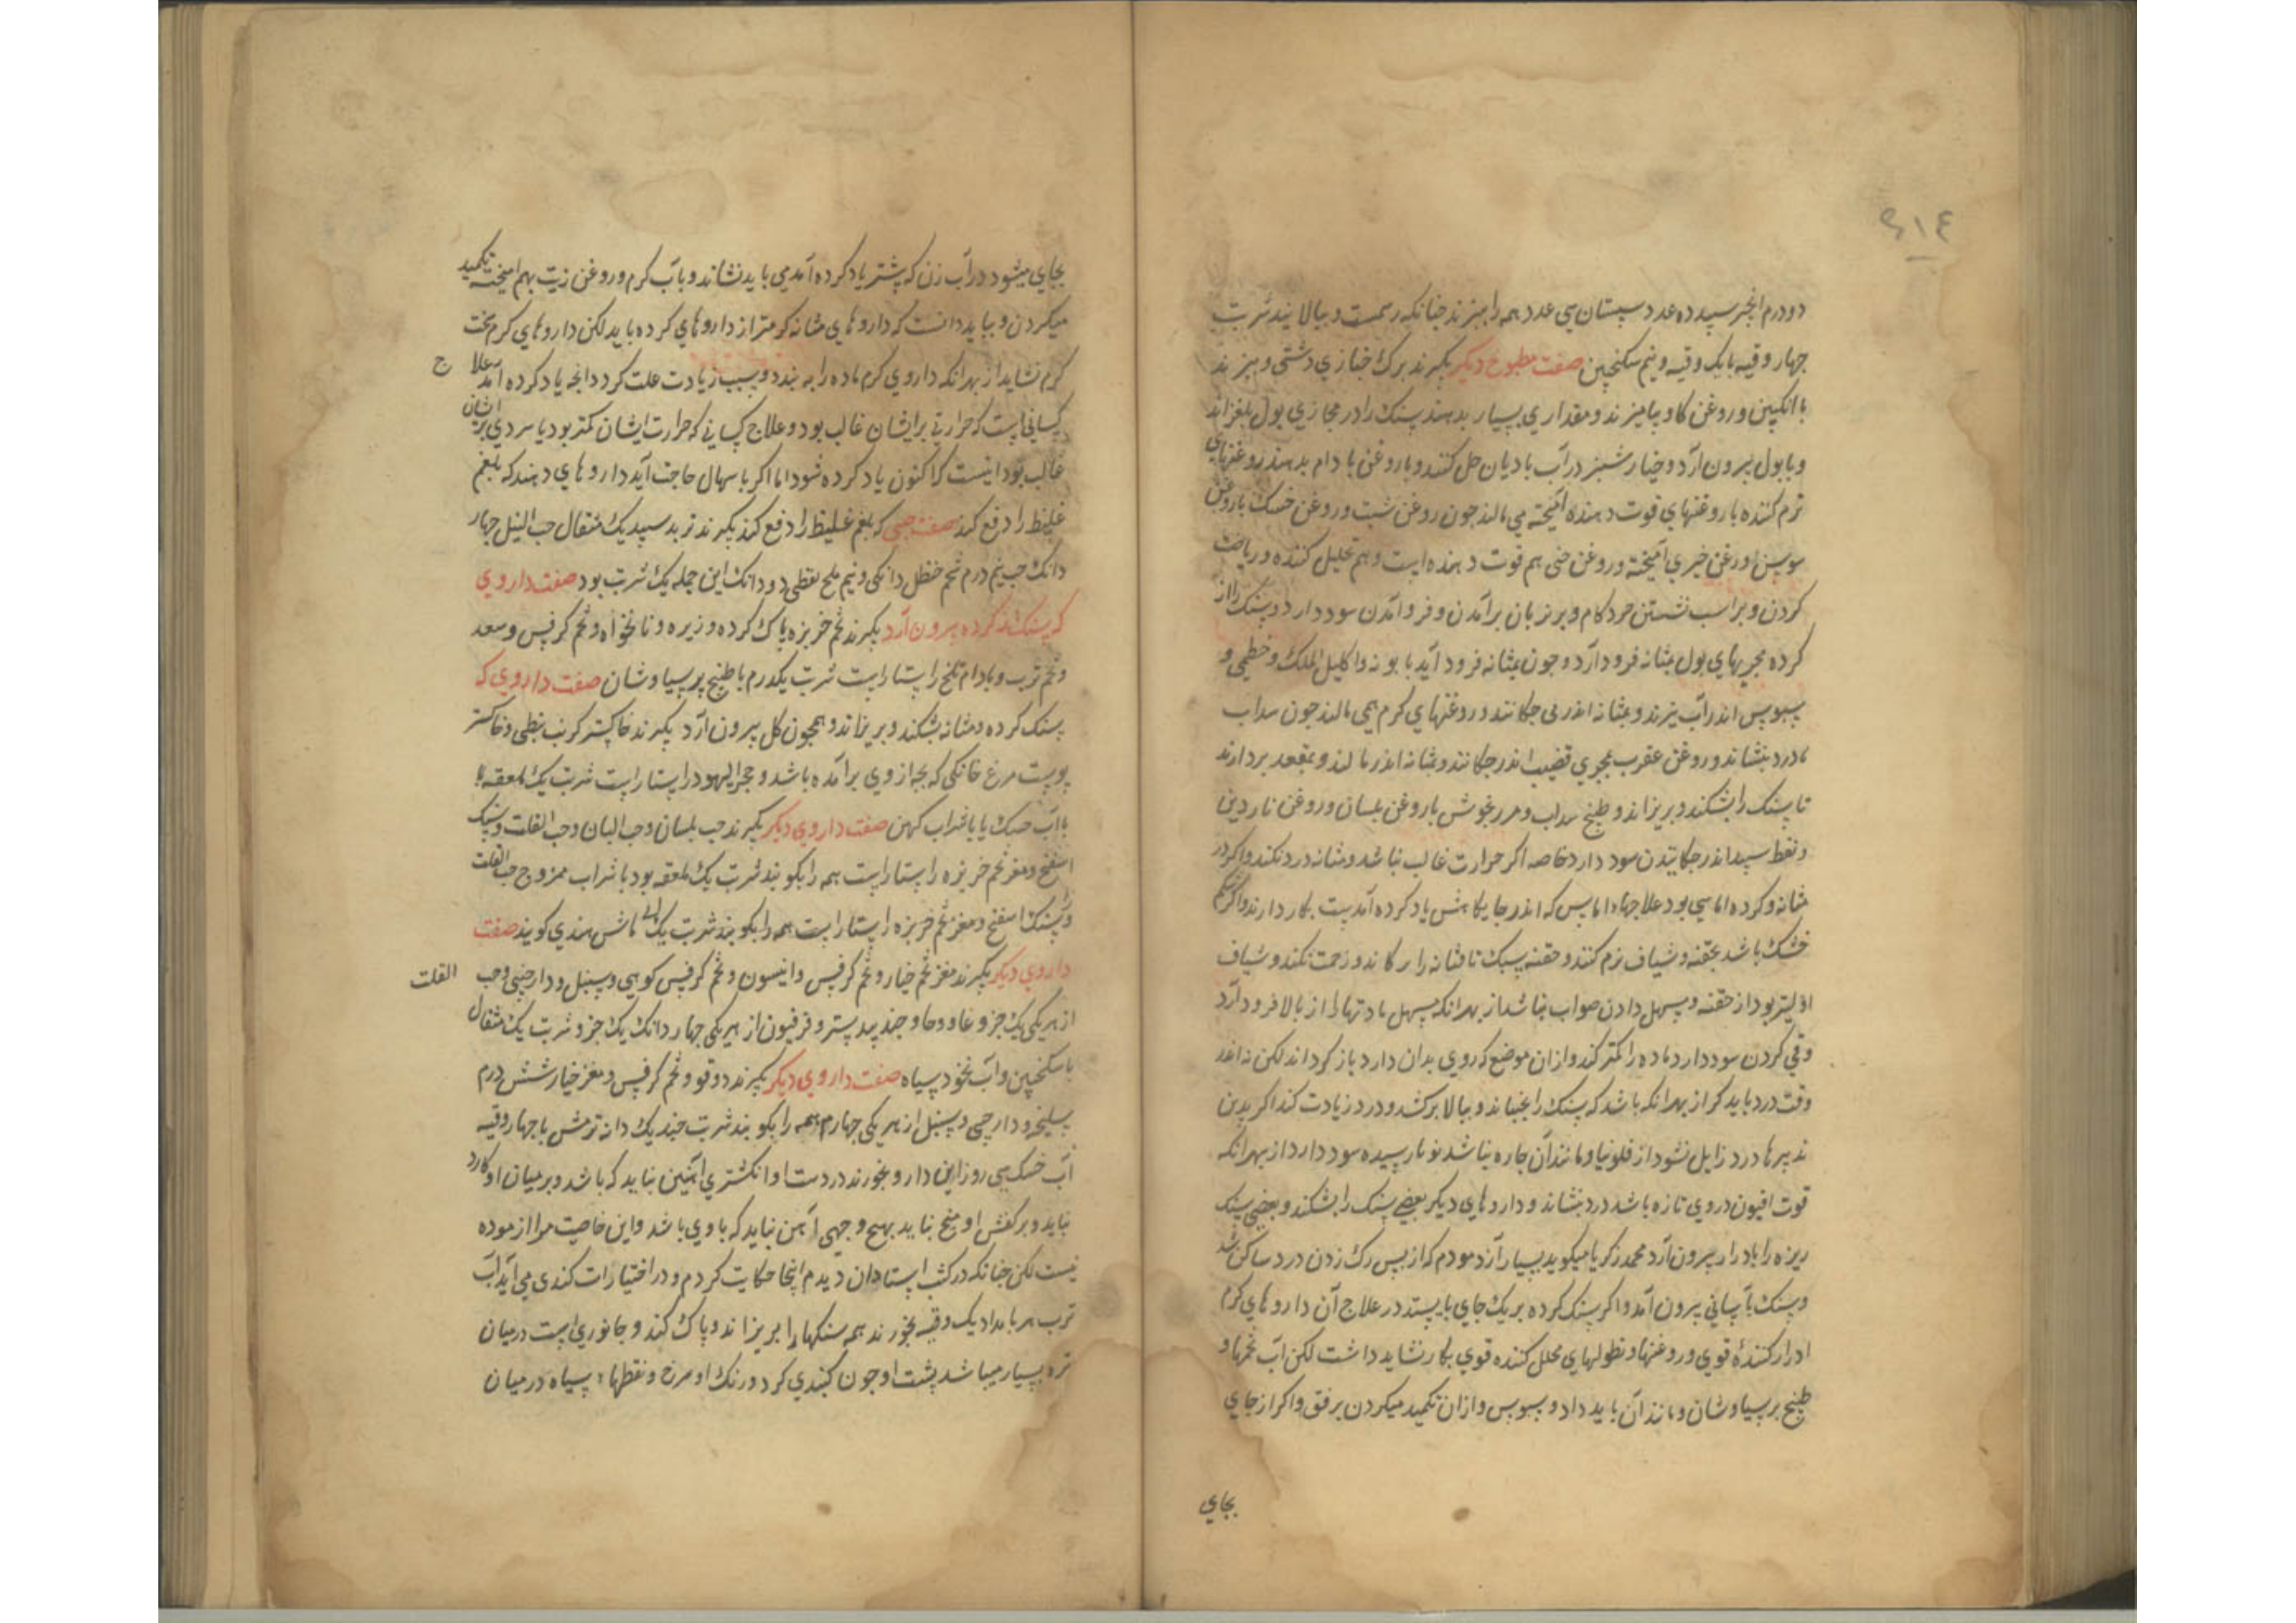 ٤١٤
دودرم انجیر سپید ده عدد سپستان سی عدد همه را بپزند جنانکه رسمست و ببالایند شربت
جهار وقیه با یک وقیه و نیم سکنجبین صفت مطبوخ دیکر بکیرند برک خبازی دشتی و بپزند
با انکبین و روغن کاو بیامیزند و مقداری بسیار بدهند سنک را در مجاری بول بلغزاند
و با بول بیرون آرد و خیار شنبر در آب بادیان حل کنند و با روغن بادام بدهند و روغنهای
نرم کننده با روغنهای قوت دهنده آمیخته می مالند جون روغن شبت و روغن خسک با روغن
سوسن و روغن خیری آمیخته و روغن حنی هم قوت دهنده است و هم تحلیل کننده و ریاضت
کردن و بر اسب نشستن خرد کام و بر نردبان برآمدن و فرو آمدن سود دارد و سنک را از
کرده مجریهای بول بمثانه فرود آرد و جون بمثانه فرود آید بابونه و اکلیل الملک و خطمی و
سبوس اندر آب بپزند و بمثانه اندر می جکانند و روغنهای کرم همی مالند جون سداب
تا درد بنشاند و روغن عقرب بمجری قضیب اندر جکانند و بمثانه اندر مالند و بمقعد بردارند
تا سنک را بشکند و بریزاند و طبیخ سداب و مرزنجوش با روغن بلسان و روغن ناردین
و نفط سپید اندر جکانیدن سود دارد خاصه اکر حرارت غالب نباشد و مثانه درد نکند و اکر در
مثانه و کرده اماسی بود علاجهاء اماس که اندر جایکاهش یاد کرده آمدست بکار دارند و اکر طبع
خشک باشد بحقنه و شیاف نرم کنند و حقنه سبک تا مثانه را نرنجاند و زحمت نکند و شیاف
اولیتر بود از حقنه و مسهل دادن صواب نباشد از بهر انکه مسهل مادتها را از بالا فرود آرد
و قی کردن سود دارد ماده را کمتر کند و ازان موضع که روی بدان دارد باز کرداند لکن نه اندر
وقت درد باید کرد از بهر انکه باشد که سنک را بجنباند و ببالا برکشد و درد زیادت کند اکر بدین
تدبیرها درد زایل نشود از فلونیا و مانند آن جاره نباشد نو نارسیده سود دارد از بهر انکه
قوت افیون در وی تازه باشد درد بنشاند و داروهای دیکر بعضی سنک را بشکند و بعضی سنک
ریزه را بادرار بیرون آرد محمد زکریا میکوید بسیار آزمودم که از پس رک زدن درد ساکن شد
و سنک بآسانی بیرون آمد و اکر سنک کرده بر یک جای بایستد در علاج آن داروهای کرم
ادرار کننده قوی و روغنها و نطولهای محلل کننده قوی بکار نشاید داشت لکن آب تخمها و
طبیخ برسیاوشان و مانند آن باید داد و بسبوس و ارزن تکمید میکردن برفق و اکر از جای
بجای
بجای میشود در آب زن که پیشتر یاد کرده آمد می باید نشاند و بآب کرم و روغن زیت بهم آمیخته تکمید
میکردن و بباید دانست که داروهای مثانه کرمتر از داروهای کرده باید لکن داروهای کرم سخت
کرم نشاید از بهر انکه داروی کرم ماده را ببندد و سبب زیادت علت کردد انجه یاد کرده آمد علاج
کسانی است که حرارتی بر ایشان غالب بود و علاج کسانی که حرارت ایشان کمتر بود یا سردی بر ایشان
غالب بود اینست که اکنون یاد کرده شود اما اکر باسهال حاجت آید داروهای دهند که بلغم
غلیظ را دفع کند صفت حبی که بلغم غلیظ را دفع کند بکیرند تربد سپید یک مثقال حب النیل جهار
دانک حب نیم درم شحم حنظل دانکی و نیم ملح نفطی دو دانک این جمله یک شربت بود صفت داروی
که سنک از کرده بیرون آرد بکیرند تخم خربزه پاک کرده و زیره و نانخواه و تخم کرفس و سعد
و تخم ترب و بادام تلخ راستا راست شربت یکدرم با طبیخ پرسیاوشان صفت داروی که
سنک کرده و مثانه بشکند و بریزاند و همجون کل بیرون آرد بکیرند خاکستر کرنب نبطی و خاکستر
پوست مرغ خانکی که بجه از وی برآمده باشد و حجر الیهود راستا راست شربت یک ملعقه با
بآب خسک یا با شراب کهن صفت داروی دیکر بکیرند حب بلسان و حب البان و حب القلت و سنک
اسفنج و مغز تخم خربزه راستا راست همه را بکوبند شربت یک ملعقه بود با شراب ممزوج حب القلت
و سنک اسفنج و مغز تخم خربزه راستا راست همه را بکوبند شربت یک ماش هندی کویند صفت
داروی دیکر بکیرند مغز تخم خیار و تخم کرفس و انیسون و تخم کرفس کوهی و سنبل و دارجینی و حب القلت
از هر یکی یک جزو غاو وحاو جندبیدستر و فرفیون از هر یکی جهار دانک یک جزو شربت یک مثقال
با سکنجبین و آب نخود سیاه صفت داروی دیکر بکیرند دوقو و تخم کرفس و مغز خیار شش درم
سلیخه و دارجینی و سنبل از هر یکی جهار درم همه را بکوبند شربت جند یک دانه ترمس با جهار وقیه
آب خسک سی روز این دارو بخورند در دست او انکشتری آهنین نباید که باشد و بر میان او کارد
نباید و بر کفش او میخ نباید بهیج وجهی آهن نباید که با وی باشد و این خاصیت مرا ازموده
نیست لکن جنانکه در کتب استادان دیدم اینجا حکایت کردم و در اختیارات کندی می آید آب
ترب هر بامداد یک وقیه بخورند همه سنکها را بریزاند و پاک کند و جانوری است در میان
تره بسیار میباشد پشت او جون کنبدی کرد و رنک او سرخ و نقطهاء سیاه در میان